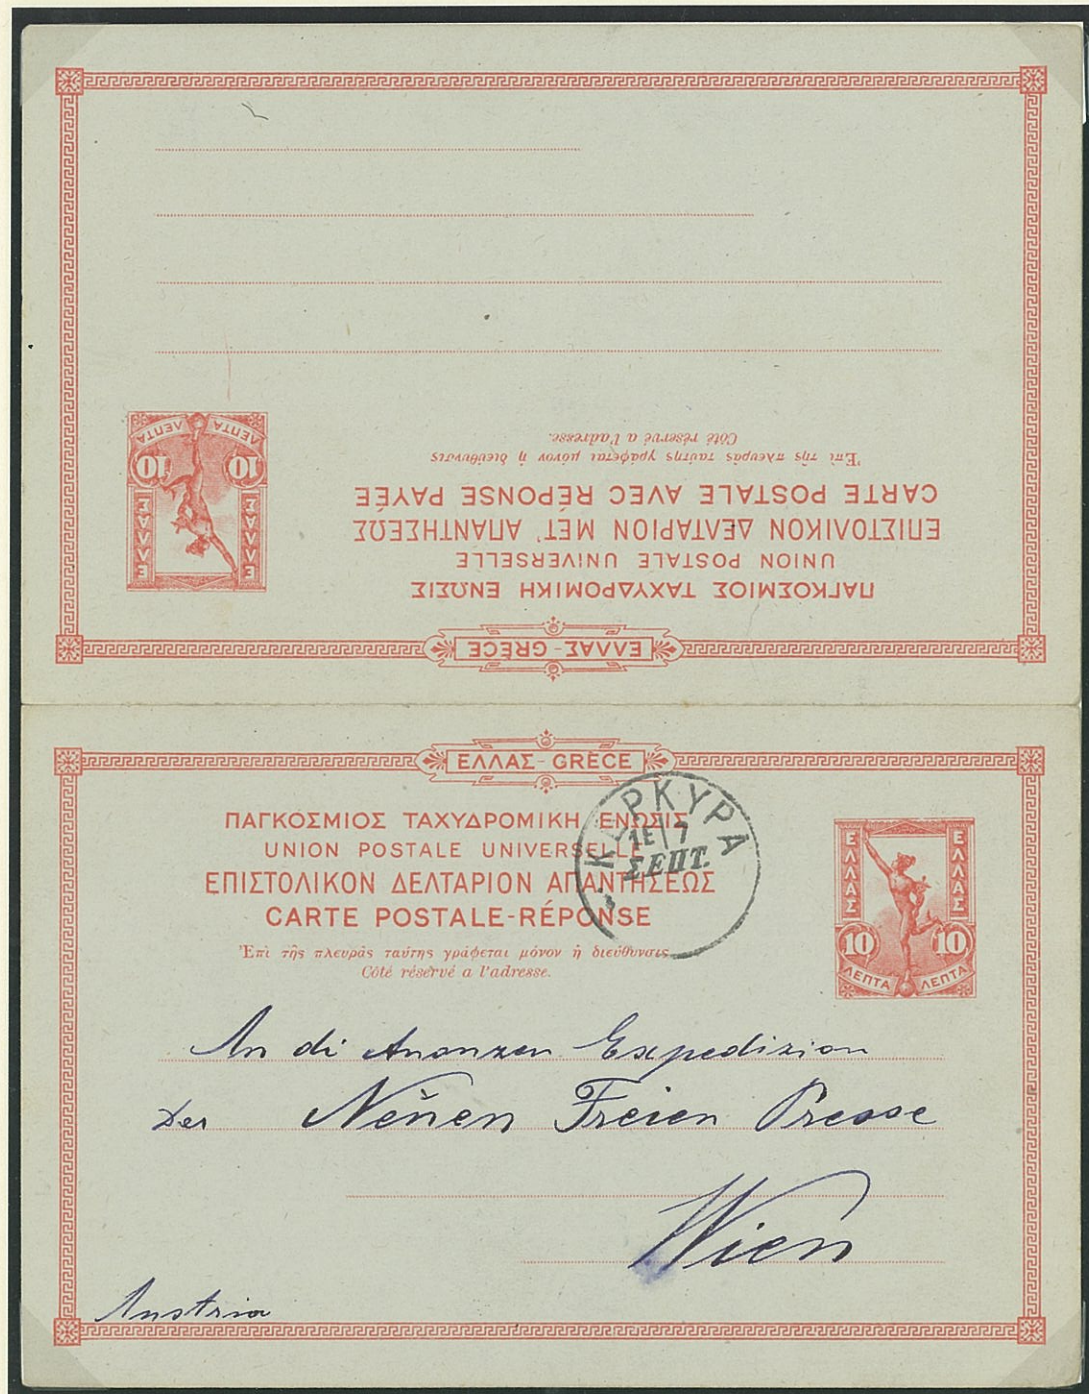 ΠΑΓΚΟΣΜΙΟΣ ΤΑΧΥΔΡΟΜΙΚΗ ΕΝΩΣΙΣ
UNION POSTALE UNIVERSELLE
ΕΠΙΣΤΟΛΙΚΟΝ ΔΕΛΤΑΡΙΟΝ ΜΕΤ' ΑΠΑΝΤΗΣΕΩΣ
CARTE POSTALE AVEC RÉPONSE PAYÉE
Ἐπὶ τῆς πλευρᾶς ταύτης γράφεται μόνον ἡ διεύθυνσις
Côté réservé a l'adresse.
ΕΛΛΑΣ ΕΛΛΑΣ
10 10
ΛΕΠΤΑ ΛΕΠΤΑ
ΕΛΛΑΣ-GRÈCE
ΕΛΛΑΣ-GRÈCE
ΠΑΓΚΟΣΜΙΟΣ ΤΑΧΥΔΡΟΜΙΚΗ ΕΝΩΣΙΣ
UNION POSTALE UNIVERSELLE
ΕΠΙΣΤΟΛΙΚΟΝ ΔΕΛΤΑΡΙΟΝ ΑΠΑΝΤΗΣΕΩΣ
CARTE POSTALE-RÉPONSE
Ἐπὶ τῆς πλευρᾶς ταύτης γράφεται μόνον ἡ διεύθυνσις
Côté réservé a l'adresse.
ΚΕΡΚΥΡΑ
7
ΣΕΠΤ.
ΕΛΛΑΣ ΕΛΛΑΣ
10 10
ΛΕΠΤΑ ΛΕΠΤΑ
An di Anonzen Expedizion
Der Neŭen Freien Presse
Wien
Austria